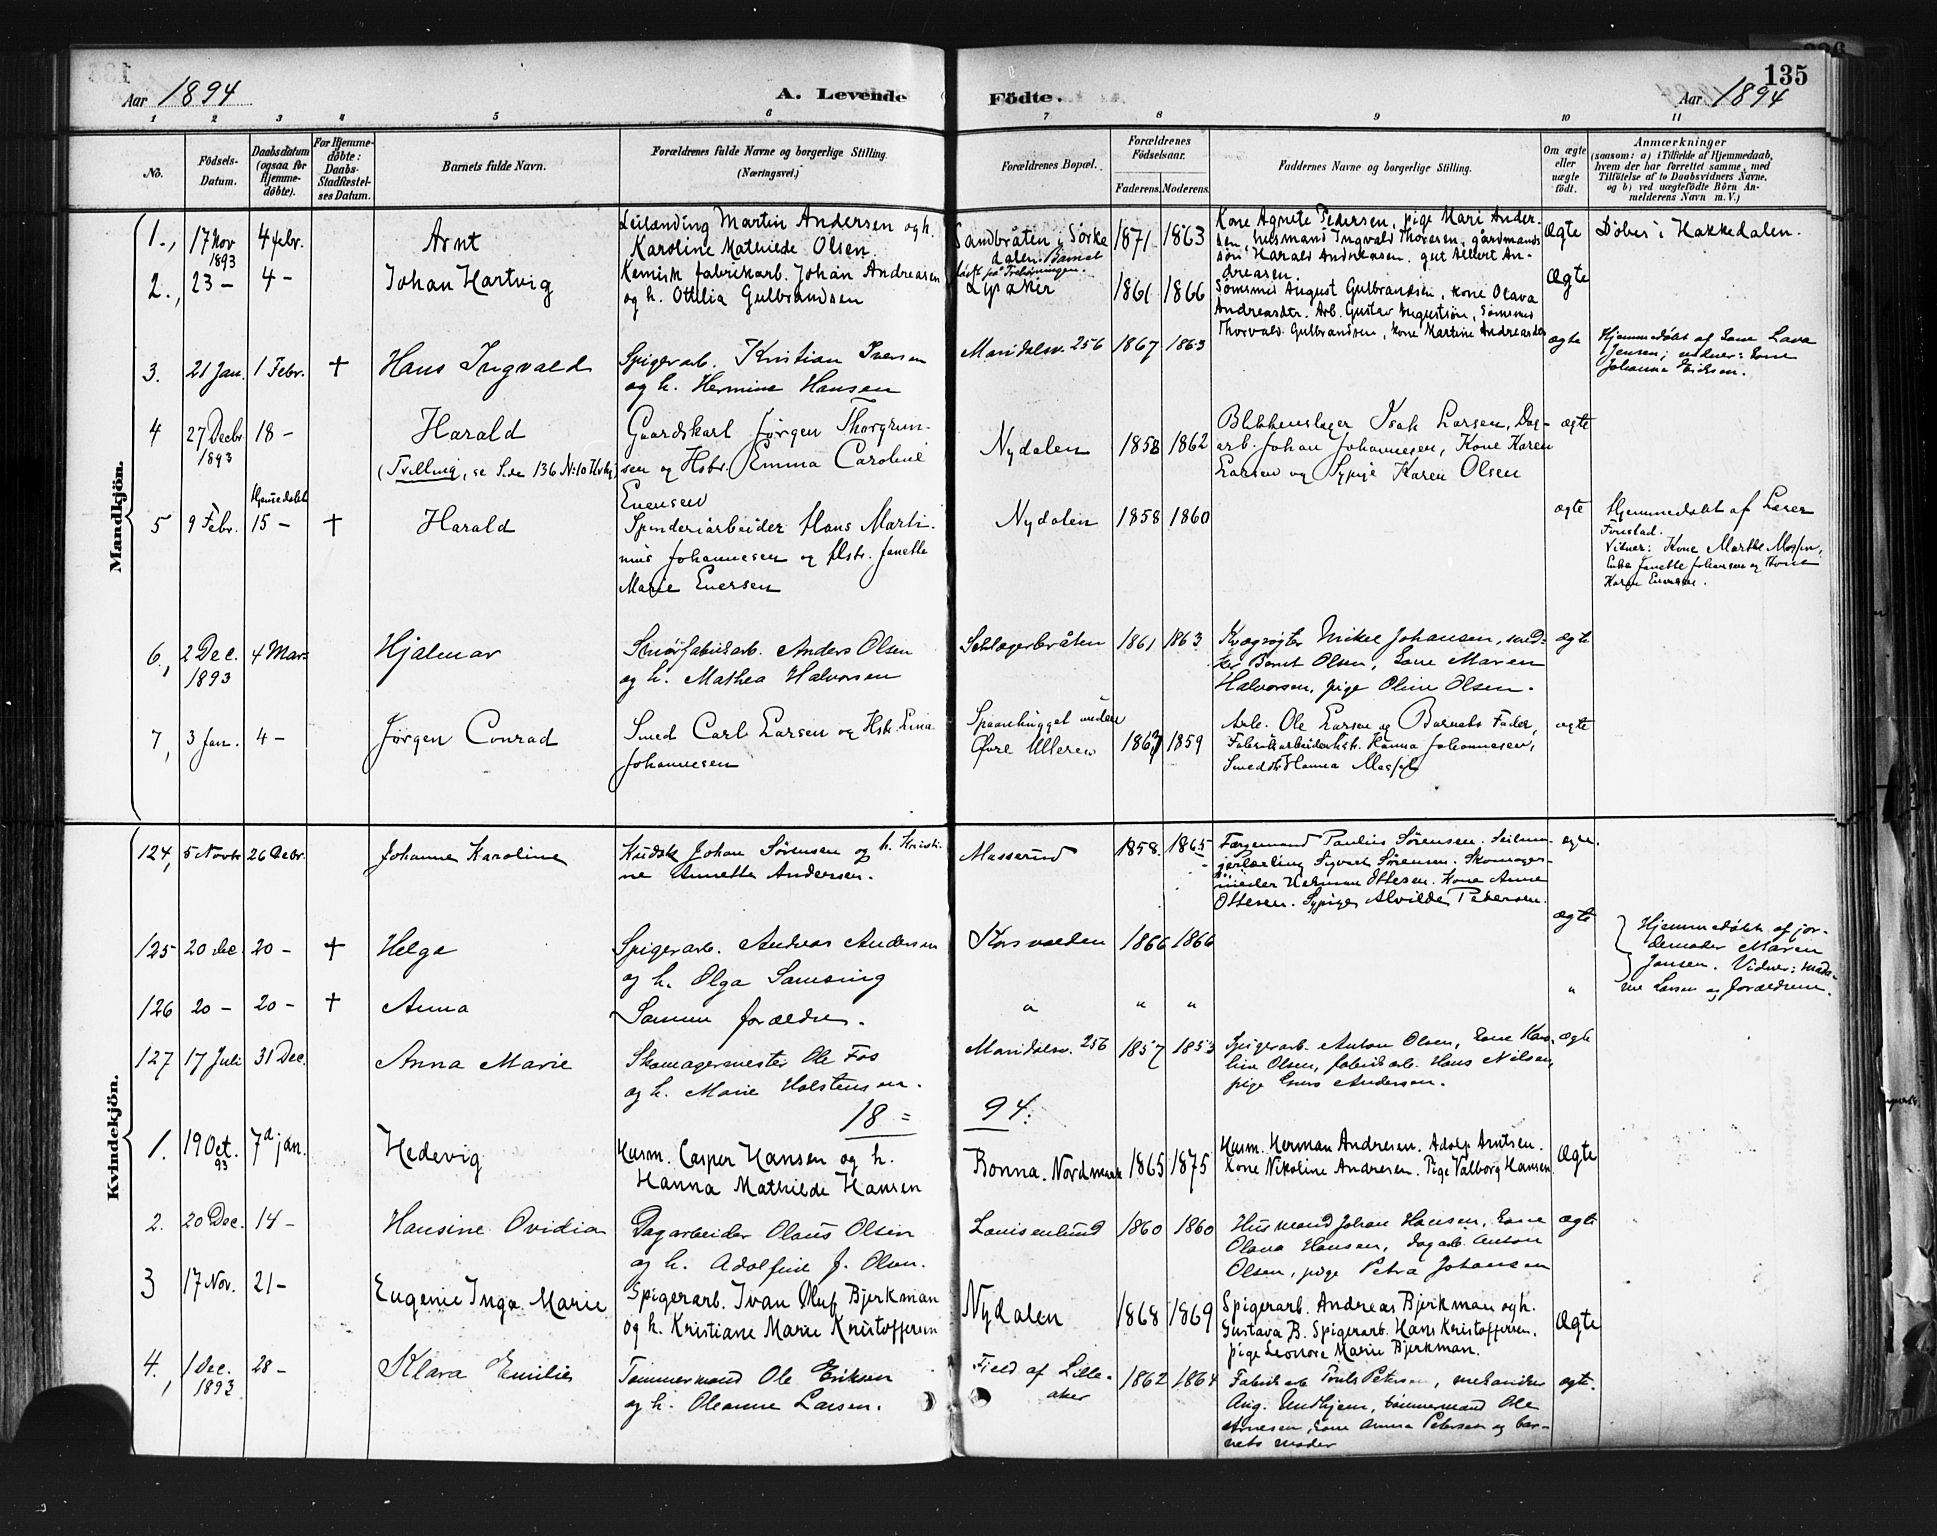 135
Aar 1894
A. Levende
Födte.
Aar 1894
1 2 3 4 5 6 7 8 9 10 11
No.
Födsels-
Datum.
Daabsdatum
(ogsaa for
Hjemme-
döbte).
For Hjemme-
döbte:
Daabs-
Stadfæstel-
ses Datum.
Barnets fulde Navn.
Forældrenes fulde Navne og borgerlige Stilling.
(Næringsvei.)
Forældrenes Bopæl.
Forældrenes
Födselsaar.
Faderens. Moderens.
Faddernes Navne og borgerlige Stilling.
Om ægte
eller
uægte
födt.
Anmærkninger
(saasom: a) i Tilfælde af Hjemmedaab,
hvem der har forrettet samme, med
Tilföielse af to Daabsvidners Navne,
og b) ved uægtefödte Börn An-
melderens Navn m. V.)
Mandkjön.
1., 17 Nov 1893 4 febr.
Arnt
Leilænding Martin Andersen og h.
Karoline Mathilde Olsen.
Sandbråten i Sörke
dalen. Barnet
født på
1871 1863
Kone Agnete Pedersen, pige Mari Ander-
sen, husmand Ingvald Thoresen, gårdmands
søn Harald Andreasen, gut Albert An-
dreasen.
Ægte
Döbt i Hakkedalen.
2., 23 – 4 –
Johan Hartvig
Kemisk fabrikarb. Johan Andreasen
og h. Ottilia Gulbrandsen
Lysaker
1861 1866
Sømsmed August Gulbrandsen, kone Olava
Andreasdtr. Arb. Gustav Augustson, Sømsmed
Thorvald Gulbrandsen, kone Martine Andreasdtr
Ægte
3. 21 Jan. 1 Febr. †
Hans Ingvald
Spigerarb. Kristian Iversen
og h. Hermine Hansen
Maridalsv. 256
1867 1863
ægte
Hjemmedøbt af kone Lava
Jensen; vidner: kone
Johanna Eriksen.
4 27 Decbr 1893 18 –
Harald
(Tvilling, se Side 136 No 10
Gaardskarl Jørgen Thorgrim-
sen og Hstr. Emma Caroline
Evensen
Nydalen
1858 1862
Blikkenslager Isak Larsen, Dag-
arb. Johan Johannesen, Kone Karen
Larsen og Sypige Karen Olsen
ægte
5 9 Febr. Hjemmedøbt 15 – †
Harald
Spinderiarbeider Hans Marti-
nius Johannesen og Hstr. Janette
Marie Eversen
Nydalen
1858 1860
ægte
Hjemmedøbt af Laser
Finstad.
Vidner: Kone Marthe
Enke Janette Johansen og Kone
Karen
6, 2 Dec. 1893 4 Mar-
Hjalmar
Smörfabrikarb. Anders Olsen
og h. Mathea Halvorsen
Schlagerbråten
1861 1863
Kvægrøgter Mikel Johansen, sned-
ker Bernt Olsen, kone Maren
Halvorsen, pige Oline Olsen.
ægte
7, 3 Jan. 4 –
Jørgen Conrad
Smed Carl Larsen og Hstr. Lina
Johannesen
Spaanhugget under
Øvre Ulleren
1863 1859
Arb. Ole Larsen og Barnets Fader,
Fabrikarbeiderhstr. Hanna Johannesen,
ægte
Kvindekjön.
124, 5 Novbr 26 Debr.
Johanne Karoline
Kudsk Johan Sørensen og h. Kristi-
ne Annette Andersen.
Masserud
1858. 1865
Færgemand Paulus Sørensen. Seilma-
gerlærling Sigvart Sørensen. Skomager-
mester Herman Ottesen. Kone Anne
Ottesen. Sypige Alvilde Petersen.
ægte.
125 20 dec. 20 – †
Helga
Spigerarb. Andreas Andersen
og h. Olga Samsing
Korsvolden
1866 1866
ægte
Hjemmedøbt af jor-
demoder Maren
Jansen. Vidner: mada-
me Larsen og forældrene.
126 20 – 20 – †
Anna
Samme forældre.
" " " "
127 17 Juli 31 Dec.
Anna Marie
Skomagermester Ole Fos
og h. Marie Holstensen.
Maridalsv. 256
1857 1853
Spigerarb. Anton Olsen, kone Karo-
line Olsen, fabrikarb. Hans Nilsen,
pige Andersen.
ægte
18 = 94.
1. 19 Oct. 93 7de jan.
Hedevig
Husm. Casper Hansen og h.
Hanna Mathilde Hansen
Bonna. Nordmark
1865 1875
Husm. Herman Andresen. Adolf Arntsen.
Kone Nikoline Andresen. Pige Valborg Hansen
Ægte
2. 20 Dec. 14 –
Hansine Ovidia
Dagarbeider Olaus Olsen
og h. Adolfine J. Olsen.
Louisenlund
1860 1860
Husmand Johan Hansen, kone
Olava Hansen, dagarb. Anton
Olsen, pige Petra Johansen
ægte
3 17 Nov. 21 –
Eugenie Inga Marie
Spigerarb. Ivan Oluf Bjerkman
og h. Kristiane Marie Kristoffersen
Nydalen
1868 1869
Spigerarb. Andreas Bjerkman og h.
Gustava B. Spigerarb. Hans Kristoffersen.
pige Leonore Marie Bjerkman.
Ægte
4., 1 Dec. 1893 28 –
Klara Emilie
Tømmermand Ole Eriksen
og h. Oleanne Larsen.
Field af Lille-
aker
1862 1864
Fabrikarb. Petersen, mekaniker
Aug. Undhjem, tømmermand Ole
Arnesen, kone Anna Petersen og bar-
nets moder
ægte.